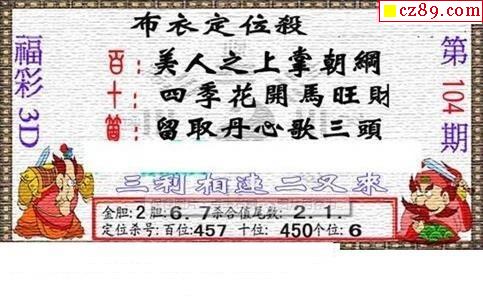 cz89.com
布衣定位殺
福彩3D
第104期
百：美人之上掌朝綱
十：四季花開馬旺財
箇：留取丹心歌三頭
三剩相連二又來
金胆:2胆:6.7杀合值尾数:2.1.
定位杀号:百位:457 十位:450个位:6